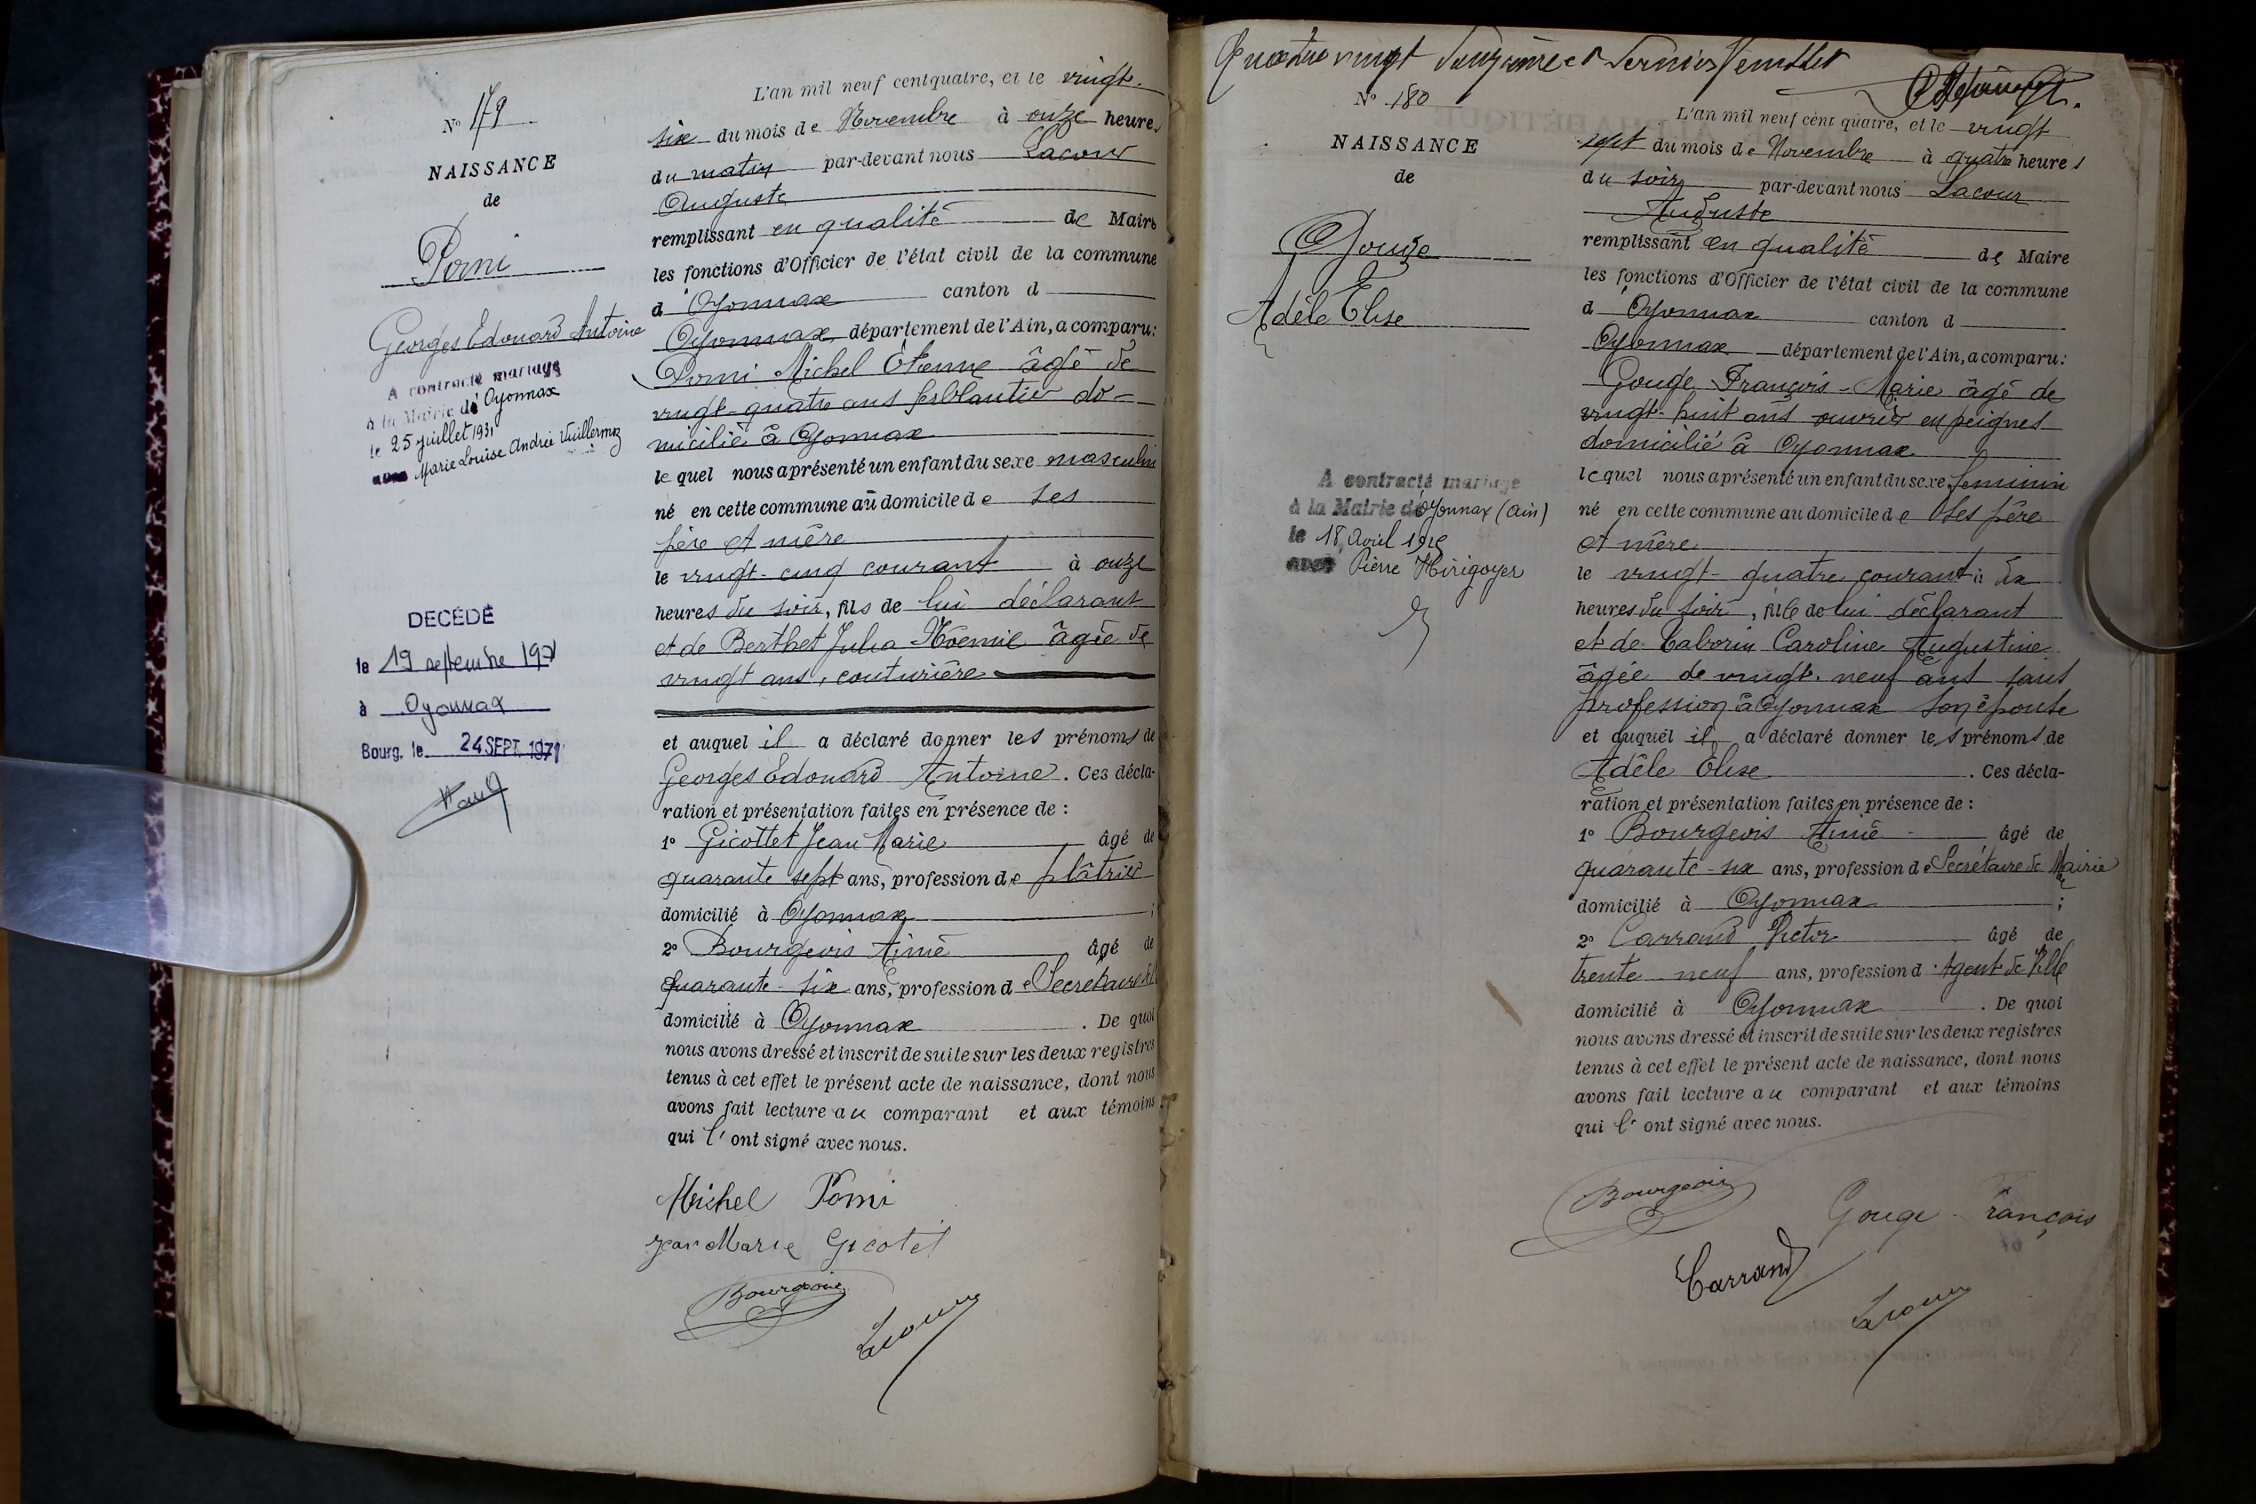 N° 179
NAISSANCE
de
Pomi
Georges Edouard Antoine
A contracté mariage
à la Mairie d' Oyonnax
le 25 juillet 1931
avec Marie Louise Andrée Vuillermoz
DÉCÉDÉ
le 19 septembre 1971
à Oyonnax
Bourg, le 24 SEPT. 1971
L'an mil neuf cent quatre, et le vingt-
six du mois de Novembre à onze heures
du matin par-devant nous Lacour
Auguste
remplissant en qualité de Maire
les fonctions d'Officier de l'état civil de la commune
d'Oyonnax canton d
Oyonnax département de l'Ain, a comparu:
Pomi Michel Étienne âgé de
vingt-quatre ans ferblantier do-
micilié à Oyonnax
lequel nous a présenté un enfant du sexe masculin
né en cette commune au domicile de ses
père et mère
le vingt-cinq courant à onze
heures du soir, fils de lui déclarant
et de Berthet Julia Noémie âgée de
vingt ans, couturière
et auquel il a déclaré donner les prénoms de
Georges Edouard Antoine. Ces décla-
ration et présentation faites en présence de :
1° Gicottet Jean Marie âgé de
quarante sept ans, profession de plâtrier
domicilié à Oyonnax ;
2° Bourgeois Aimé âgé de
quarante-six ans, profession de Secrétaire
domicilié à Oyonnax. De quoi
nous avons dressé et inscrit de suite sur les deux registres
tenus à cet effet le présent acte de naissance, dont nous
avons fait lecture au comparant et aux témoins
qui l'ont signé avec nous.
Michel Pomi
Jean Marie Gicotet
Bourgeois
Lacour
Quatre vingt douzième et dernier feuillet
N° 180
NAISSANCE
de
Gouge
Adèle Élise
A contracté mariage
à la Mairie d'Oyonnax (Ain)
le 18 Avril
avec Pierre Hirigoyer
L'an mil neuf cent quatre, et le vingt
sept du mois de Novembre à quatre heures
du soir par-devant nous Lacour
Auguste
remplissant en qualité de Maire
les fonctions d'Officier de l'état civil de la commune
d'Oyonnax canton d
Oyonnax département de l'Ain, a comparu:
Gouge François-Marie âgé de
vingt-huit ans ouvrier en peignes
domicilié à Oyonnax
lequel nous a présenté un enfant du sexe feminin
né en cette commune au domicile de ses père
et mère
le vingt-quatre courant à dix
heures du soir, fille de lui déclarant
et de Caroline Augustine
âgée de vingt-neuf ans sans
profession à Oyonnax son épouse
et auquel il a déclaré donner les prénoms de
Adèle Élise. Ces décla-
ration et présentation faites en présence de :
1° Bourgeois Aimé âgé de
quarante-six ans, profession de Secrétaire de Mairie
domicilié à Oyonnax ;
2° Carrand Victor âgé de
trente neuf ans, profession d'Agent de Ville
domicilié à Oyonnax. De quoi
nous avons dressé et inscrit de suite sur les deux registres
tenus à cet effet le présent acte de naissance, dont nous
avons fait lecture au comparant et aux témoins
qui l'ont signé avec nous.
Bourgeois
Gouge François
Carrand
Lacour